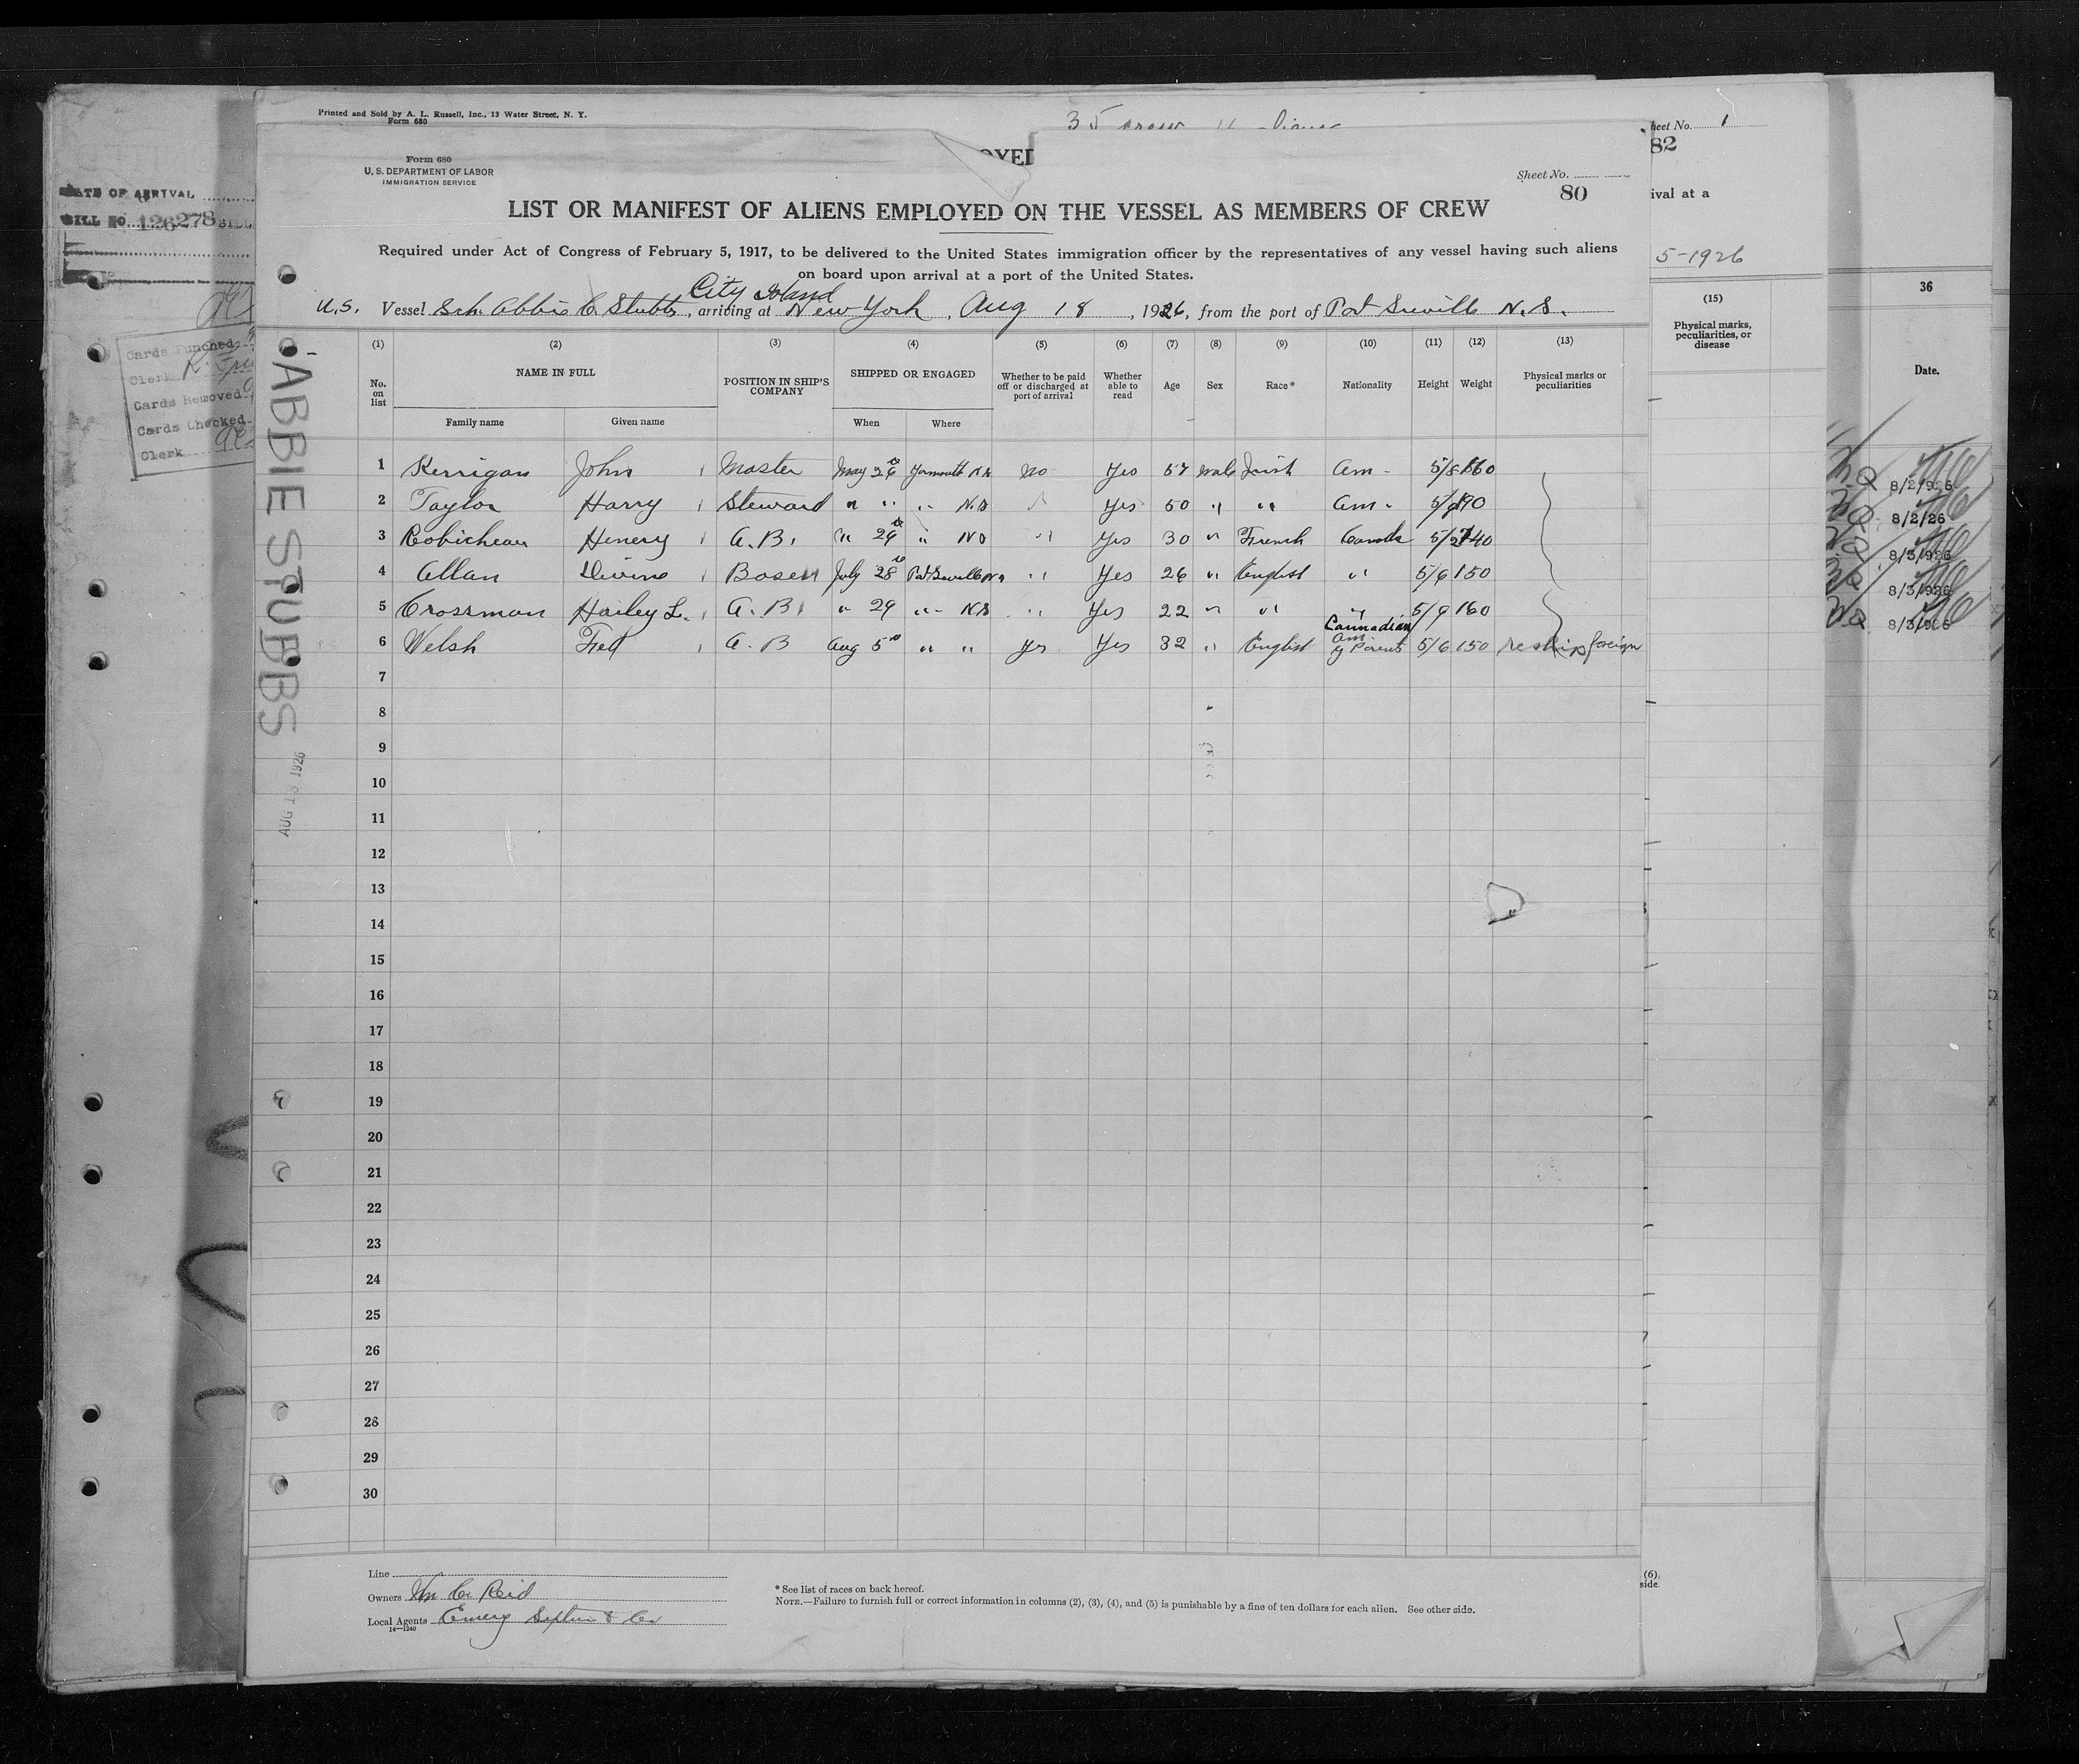 Printed and Sold by A. L. Russell, Inc., 13 Water Street, N. Y.
Form 680
35 crew
Sheet No. 1
82
OYED
Form 680
U. S. DEPARTMENT OF LABOR
IMMIGRATION SERVICE
Sheet No.
80
DATE OF ARRIVAL
BILL NO. 126278
ival at a
5-1926
LIST OR MANIFEST OF ALIENS EMPLOYED ON THE VESSEL AS MEMBERS OF CREW
Required under Act of Congress of February 5, 1917, to be delivered to the United States immigration officer by the representatives of any vessel having such aliens
on board upon arrival at a port of the United States.
City Island
U.S. Vessel Sch. Abbie C. Stubbs, arriving at New York, Aug 18, 1926, from the port of Port N.S.
(1) (2) (3) (4) (5) (6) (7) (8) (9) (10) (11) (12) (13)
No. on list
NAME IN FULL
Family name Given name
POSITION IN SHIP'S COMPANY
SHIPPED OR ENGAGED
When Where
Whether to be paid off or discharged at port of arrival
Whether able to read
Age Sex Race* Nationality Height Weight
Physical marks or peculiarities
(15)
Physical marks, peculiarities, or disease
36
Date.
Cards Punched
Clerk
Cards Removed
Cards Checked
Clerk
ABBIE STUBBS
AUG 18 1926
1 Kerrigan John Master May 26 Yarmouth N.S. No Yes 57 Male Irish Am. 5/8 160
2 Taylor Harry Steward " " " N.S. " Yes 50 " " Am. 190
3 Robicheau Henery A.B. " 29 " N.S. " Yes 30 " French 140
4 Allan July 28 " Yes 26 " English " 5/6 150
5 Crossman Hailey L. A.B. " 29 " N.S. " Yes 22 " " " 5/9 160
6 Welsh Fred A.B Aug 5 " " Yes Yes 32 " English Cannadian Am. Parents 5/6 150 reship foreign
7
8
9
10
11
12
13
14
15
16
17
18
19
20
21
22
23
24
25
26
27
28
29
30
8/2/26
Line
Owners Wm C. Reid
Local Agents Emery & Co
14—1240
* See list of races on back hereof.
NOTE.—Failure to furnish full or correct information in columns (2), (3), (4), and (5) is punishable by a fine of ten dollars for each alien. See other side.
(6),
side.